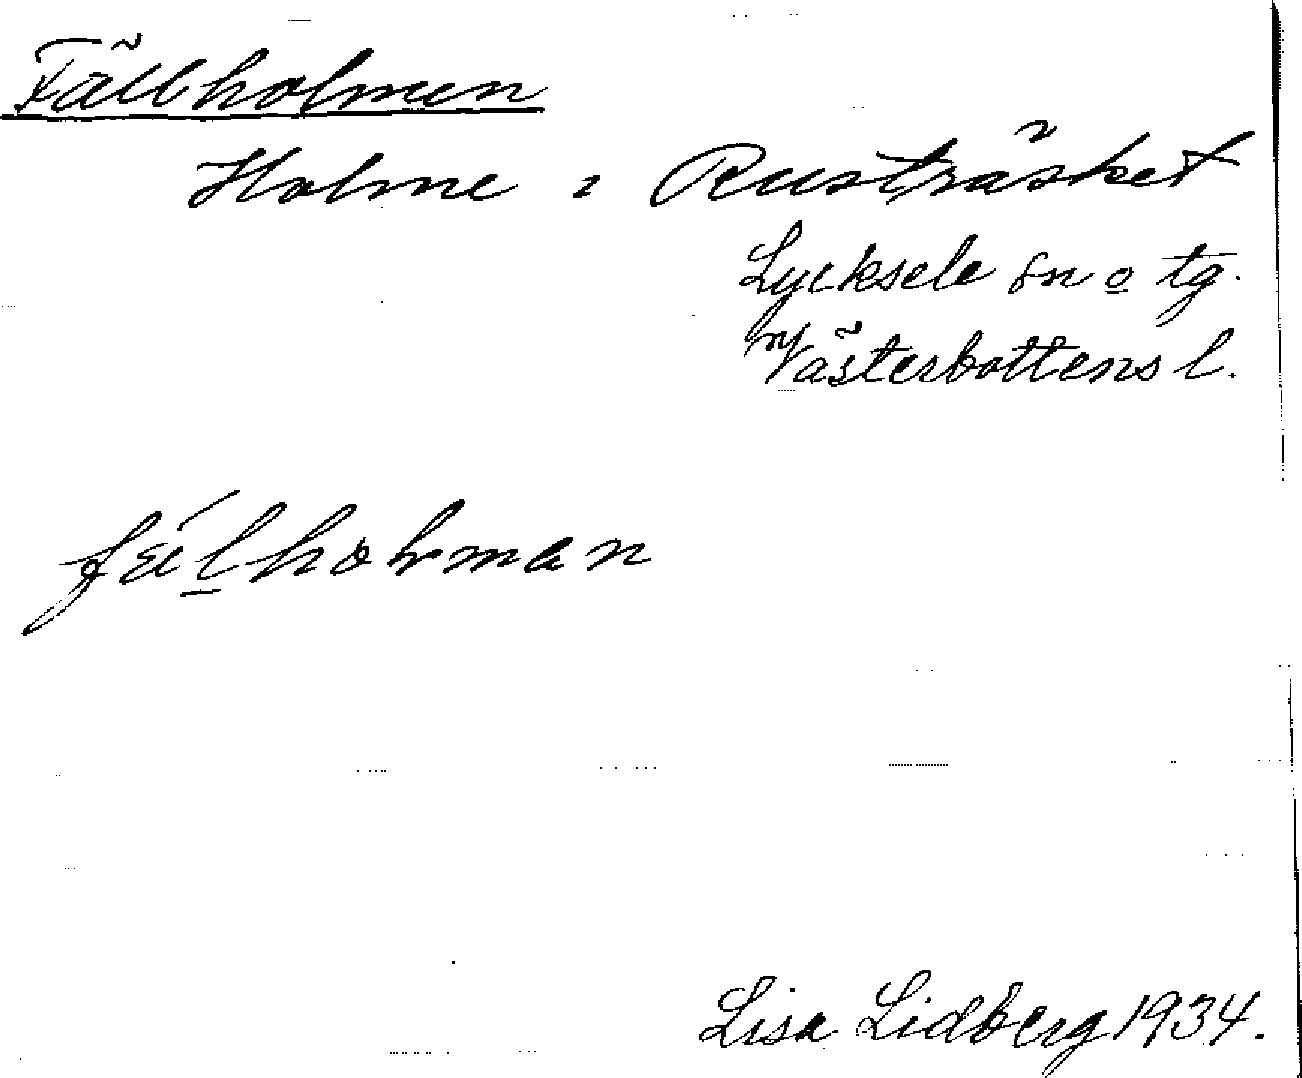 Fällholmen
Holme i Rusträsket
Lycksele sn o tg.
Västerbottens l.
fäl̲holman
Lisa Lidberg 1934.